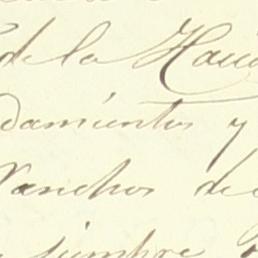 de la Haci
damientos y
Sanchos de
siempre